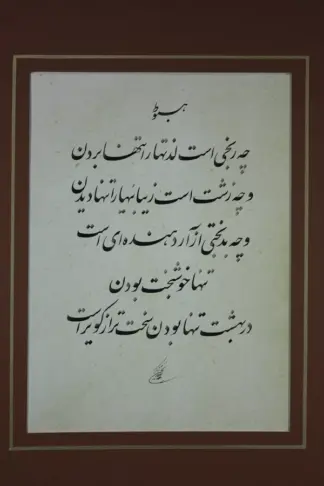 هبوط
چه رنجی است لذتها را تنها بردن
و چه زشت است زیبائیها را تنها دیدن
و چه بدبختی آزاردهنده ای است
تنها خوشبخت بودن
در بهشت تنها بودن سخت تر از کویر است